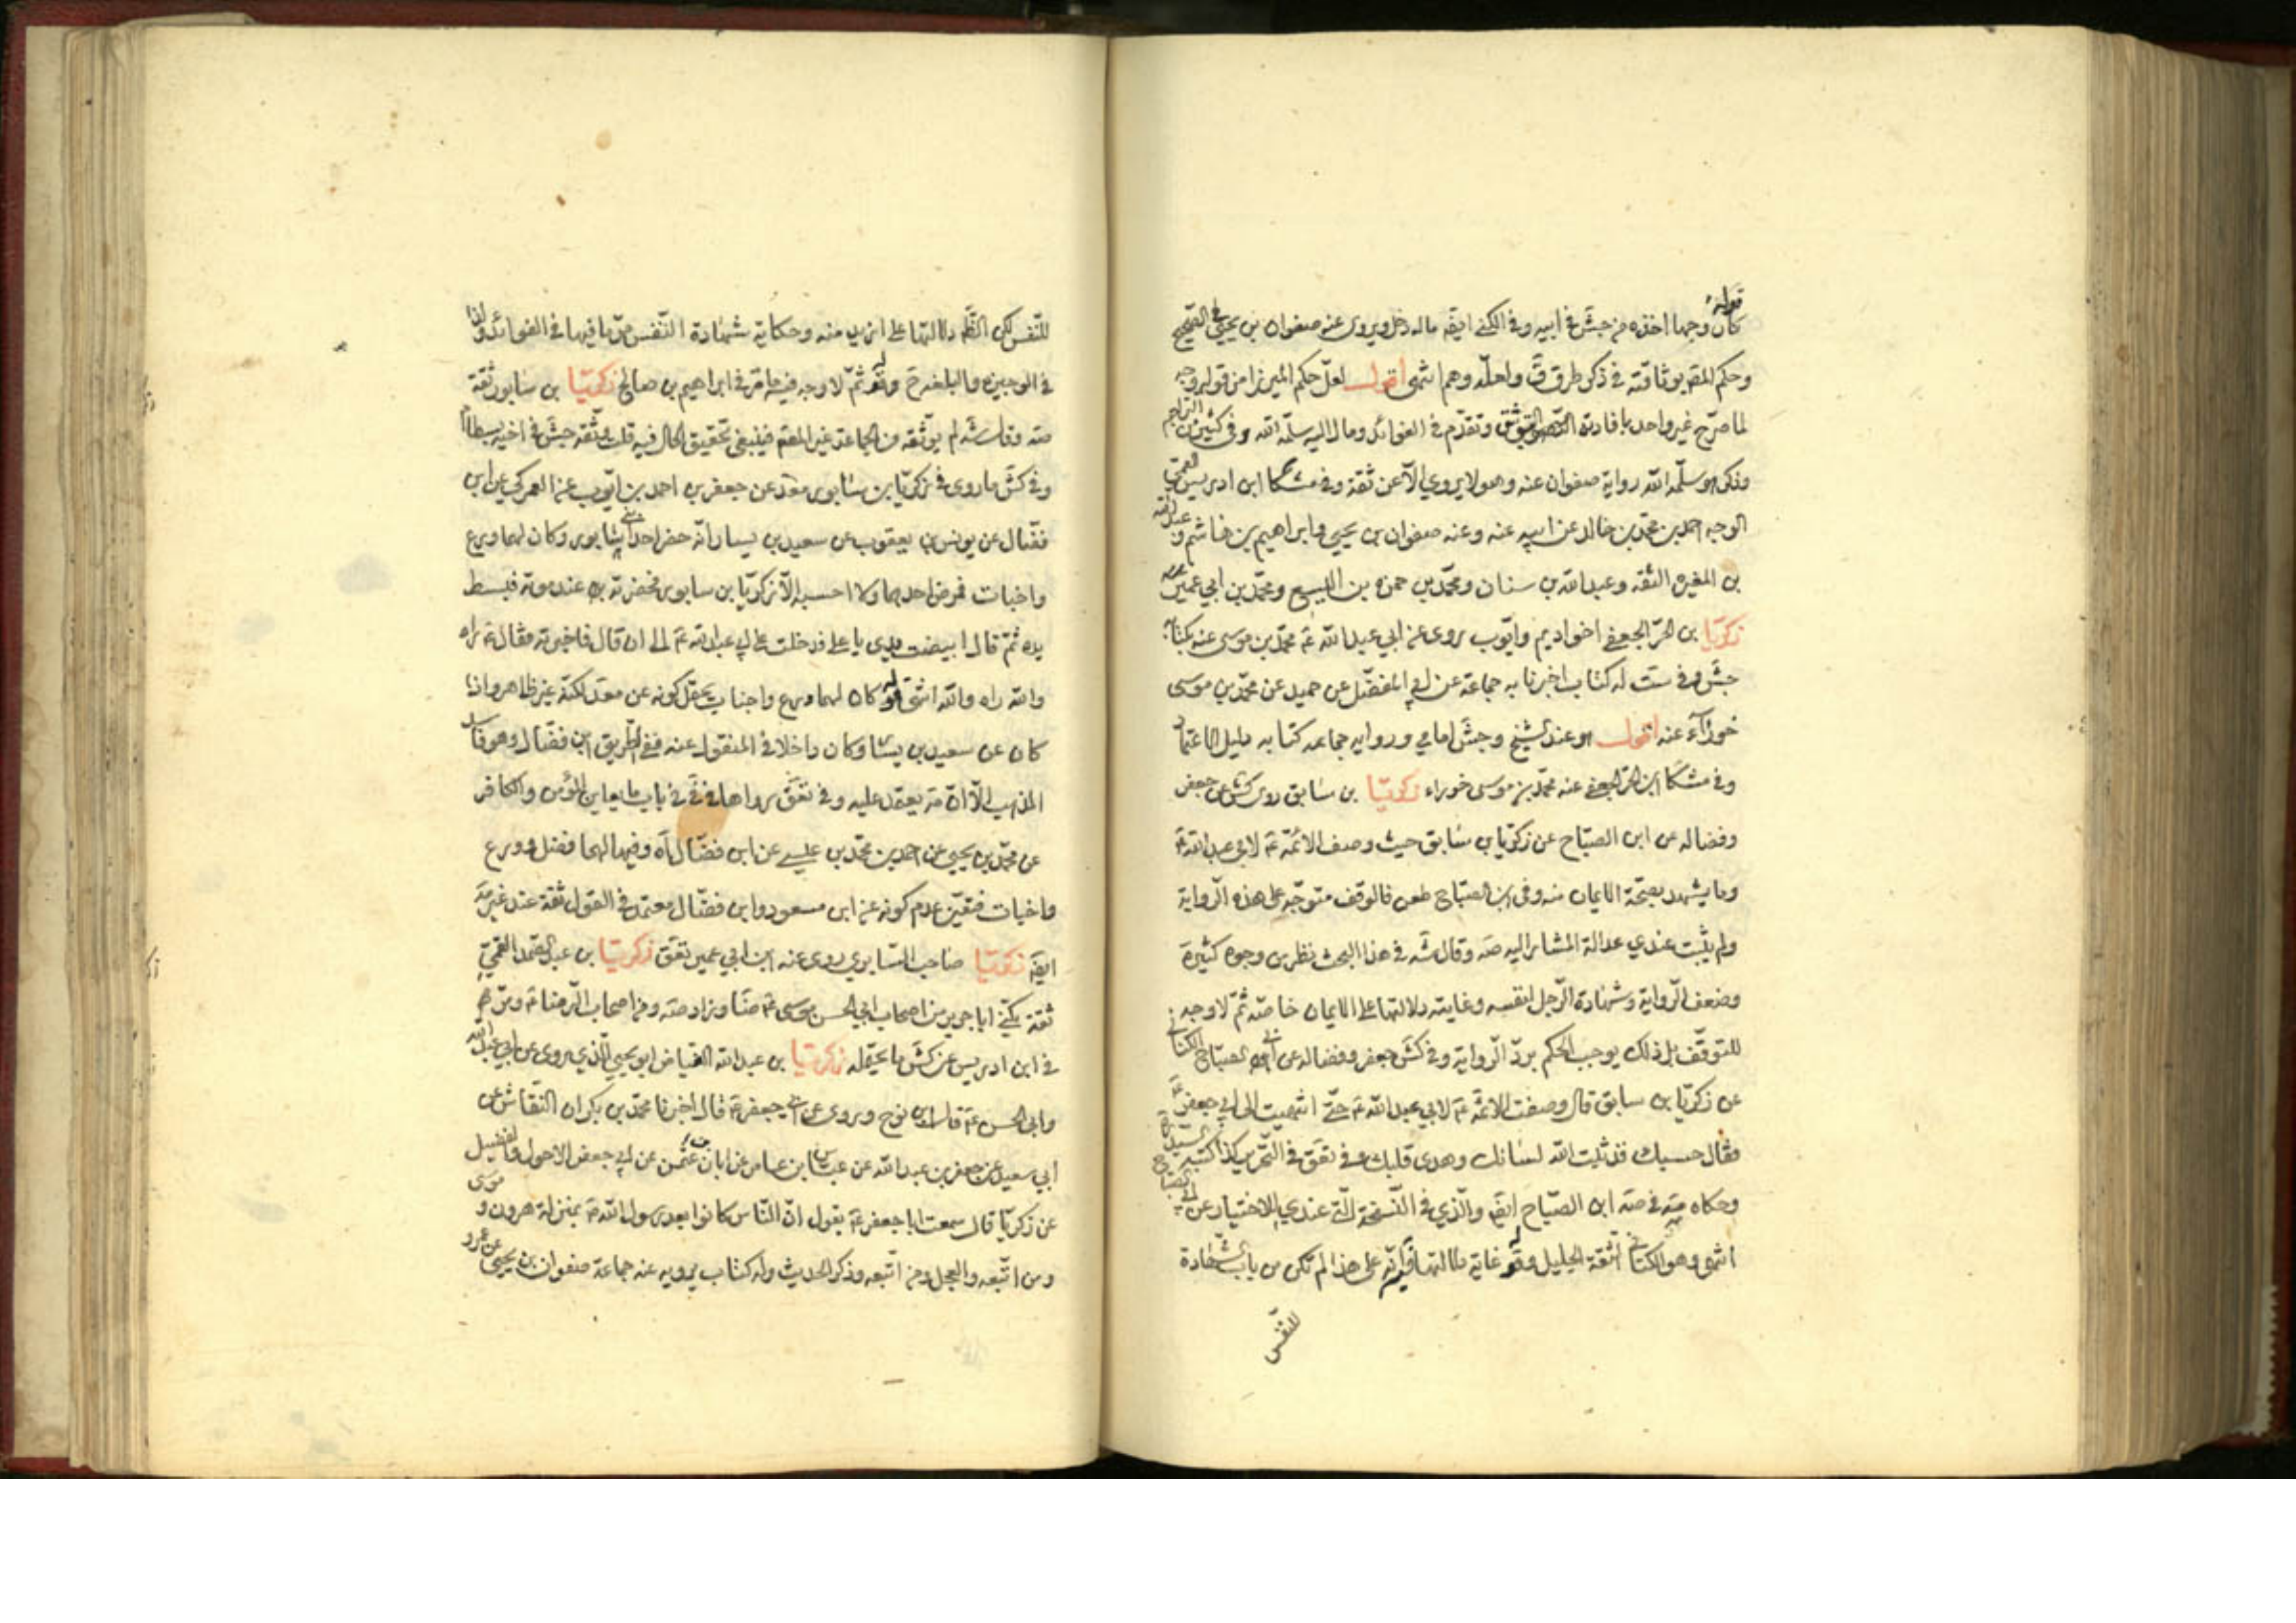 قوله
كان وجها اخذه من جش في ابيه وفي الكنى ايضه ماله دخل ويروى عنه صفوان بن يحيى في الصحيح
وحكم المصه بوثاقته في ذكر طرق ق ولعله وهم انتهى اقول لعل حكم الميرزا من قوله وجه
لما صرح غير واحد بافادته التوثيق وتقدم في الفوائد ومال اليه سلمه الله وفي كثير من التراجم
وذكر هو سلمه الله رواية صفوان عنه وهو لا يروي الا عن ثقة وفي مشكا ابن ادريس القمي
الوجه احمد بن محمد بن خالد عن ابيه عنه وعنه صفوان بن يحيى وابراهيم بن هاشم وعبد الله
بن المغيره الثقه وعبد الله بن سنان ومحمد بن حمزه بن اليسع ومحمد بن ابي عمير عنه
زكريا بن الحر الجعفي اخو اديم وايوب روى عن ابي عبد الله ع محمد بن موسى عنه بكتابه
جش وفي ست له كتاب اخبرنا به جماعة عن ابي المفضل عن حميد عن محمد بن موسى
خوراء عنه اقول هو عند الشيخ وجش امامي ورواية جماعه كتابه دليل الاعتماد
وفي مشكا ابن الحر الجعفي عنه محمد بن موسى خوراء زكريا بن سابق روى كش عن جعفر
وفضاله عن ابن الصباح عن زكريا بن سابق حيث وصف الائمة ع لابي عبد الله ع
وما يشهد بصحة الايمان منه وفي ابن الصباح طعن فالوقف متوجه على هذه الرواية
ولم يثبت عندي عدالة المشار اليه صه وقال شه في هذا البحث نظر من وجوه كثيرة
وضعف الرواية وشهادة الرجل لنفسه وغايته دلالتها على الايمان خاصة ثم لا وجه
للتوقف بل ذلك يوجب الحكم برد الرواية وفي كش جعفر وفضاله عن ابي الصباح الكناني
عن زكريا بن سابق قال وصفت الائمة ع لابي عبد الله ع حتى انتهيت الى ابي جعفر ع
فقال حسبك قد ثبت الله لسانك وهدى قلبك وفي تعق في التحرير كذا كتبه السيد
وحكاه عنه في صه ابن الصباح ايضه والذي في النسخة التي عندي للاختيار عن ابي الصباح
انتهى وهو الكناني الثقة الجليل وقوله غاية دلالتها فيه انه على هذا لم تكن من باب الشهادة
للنفس
للنفس لكن الظه دلالتها على ازيد منه وحكاية شهادة النفس مر ما فيها في الفوائد ولذا
في الوجيزة والبلغه ح وقوله ثم لا وجه فيه ما مر في ابراهيم بن صالح زكريا بن سابور ثقة
صه وقال شه لم يوثقه من الجماعة غير المصه فينبغي تحقيق الحال فيه قلت وثقه جش في اخيه بسطام
وفي كش ما روى في زكريا بن سابور معود عن جعفر بن احمد بن ايوب عن العمركي عن ابن
فضال عن يونس بن يعقوب عن سعيد بن يسار انه حضر احد ابني سابور وكان لهما ورع
واخبات فمرض احدهما ولا احسبه الا زكريا بن سابور فحضرته عند موته فبسط
يده ثم قال ابيضت يدي يا علي فدخلت على ابي عبد الله ع الى ان قال فاخبرته فقال ع راه
والله راه والله انتهى قوله كان لهما ورع واخبات يحتمل كونه عن معود لكنه غير ظاهر واذا
كان عن سعيد بن يسار وكان داخلا في المنقول عنه ففي الطريق ابن فضال وهو فاسد
المذهب الا ان صه يعول عليه وفي تعق رواها في في باب ما يعاين المؤمن والكافر
عن محمد بن يحيى عن احمد بن محمد بن عيسى عن ابن فضال اه وفيها لهما فضل وورع
واخبات فتعين عدم كونه عن ابن مسعود وابن فضال معتمد في القول ثقة عند غير صه
ايضه زكريا صاحب السابري روى عنه ابن ابي عمير تعق زكريا بن عبد الصمد القمي
ثقة يكنى ابا جرير من اصحاب ابي الحسن موسى ع ضا وزاد صه ومن اصحاب الرضا ع ومر
في ابن ادريس عن كش ما يحتمله زكريا بن عبد الله الفياض ابو يحيى الذي يروى عن ابي عبد الله
وابي الحسن ع قال ابن نوح وروى عن ابي جعفر ع قال اخبرنا محمد بن بكران النقاش عن
ابي سعيد عن جعفر بن عبد الله عن عباس بن عامر عن ابان بن عثمن عن ابي جعفر الاحول والفضيل
عن زكريا قال سمعت ابا جعفر ع يقول ان الناس كانوا بعد رسول الله ص بمنزلة هرون وموسى
ومن اتبعه والعجل ومن اتبعه وذكر الحديث وله كتاب يرويه عنه جماعة صفوان بن يحيى عن عمرو